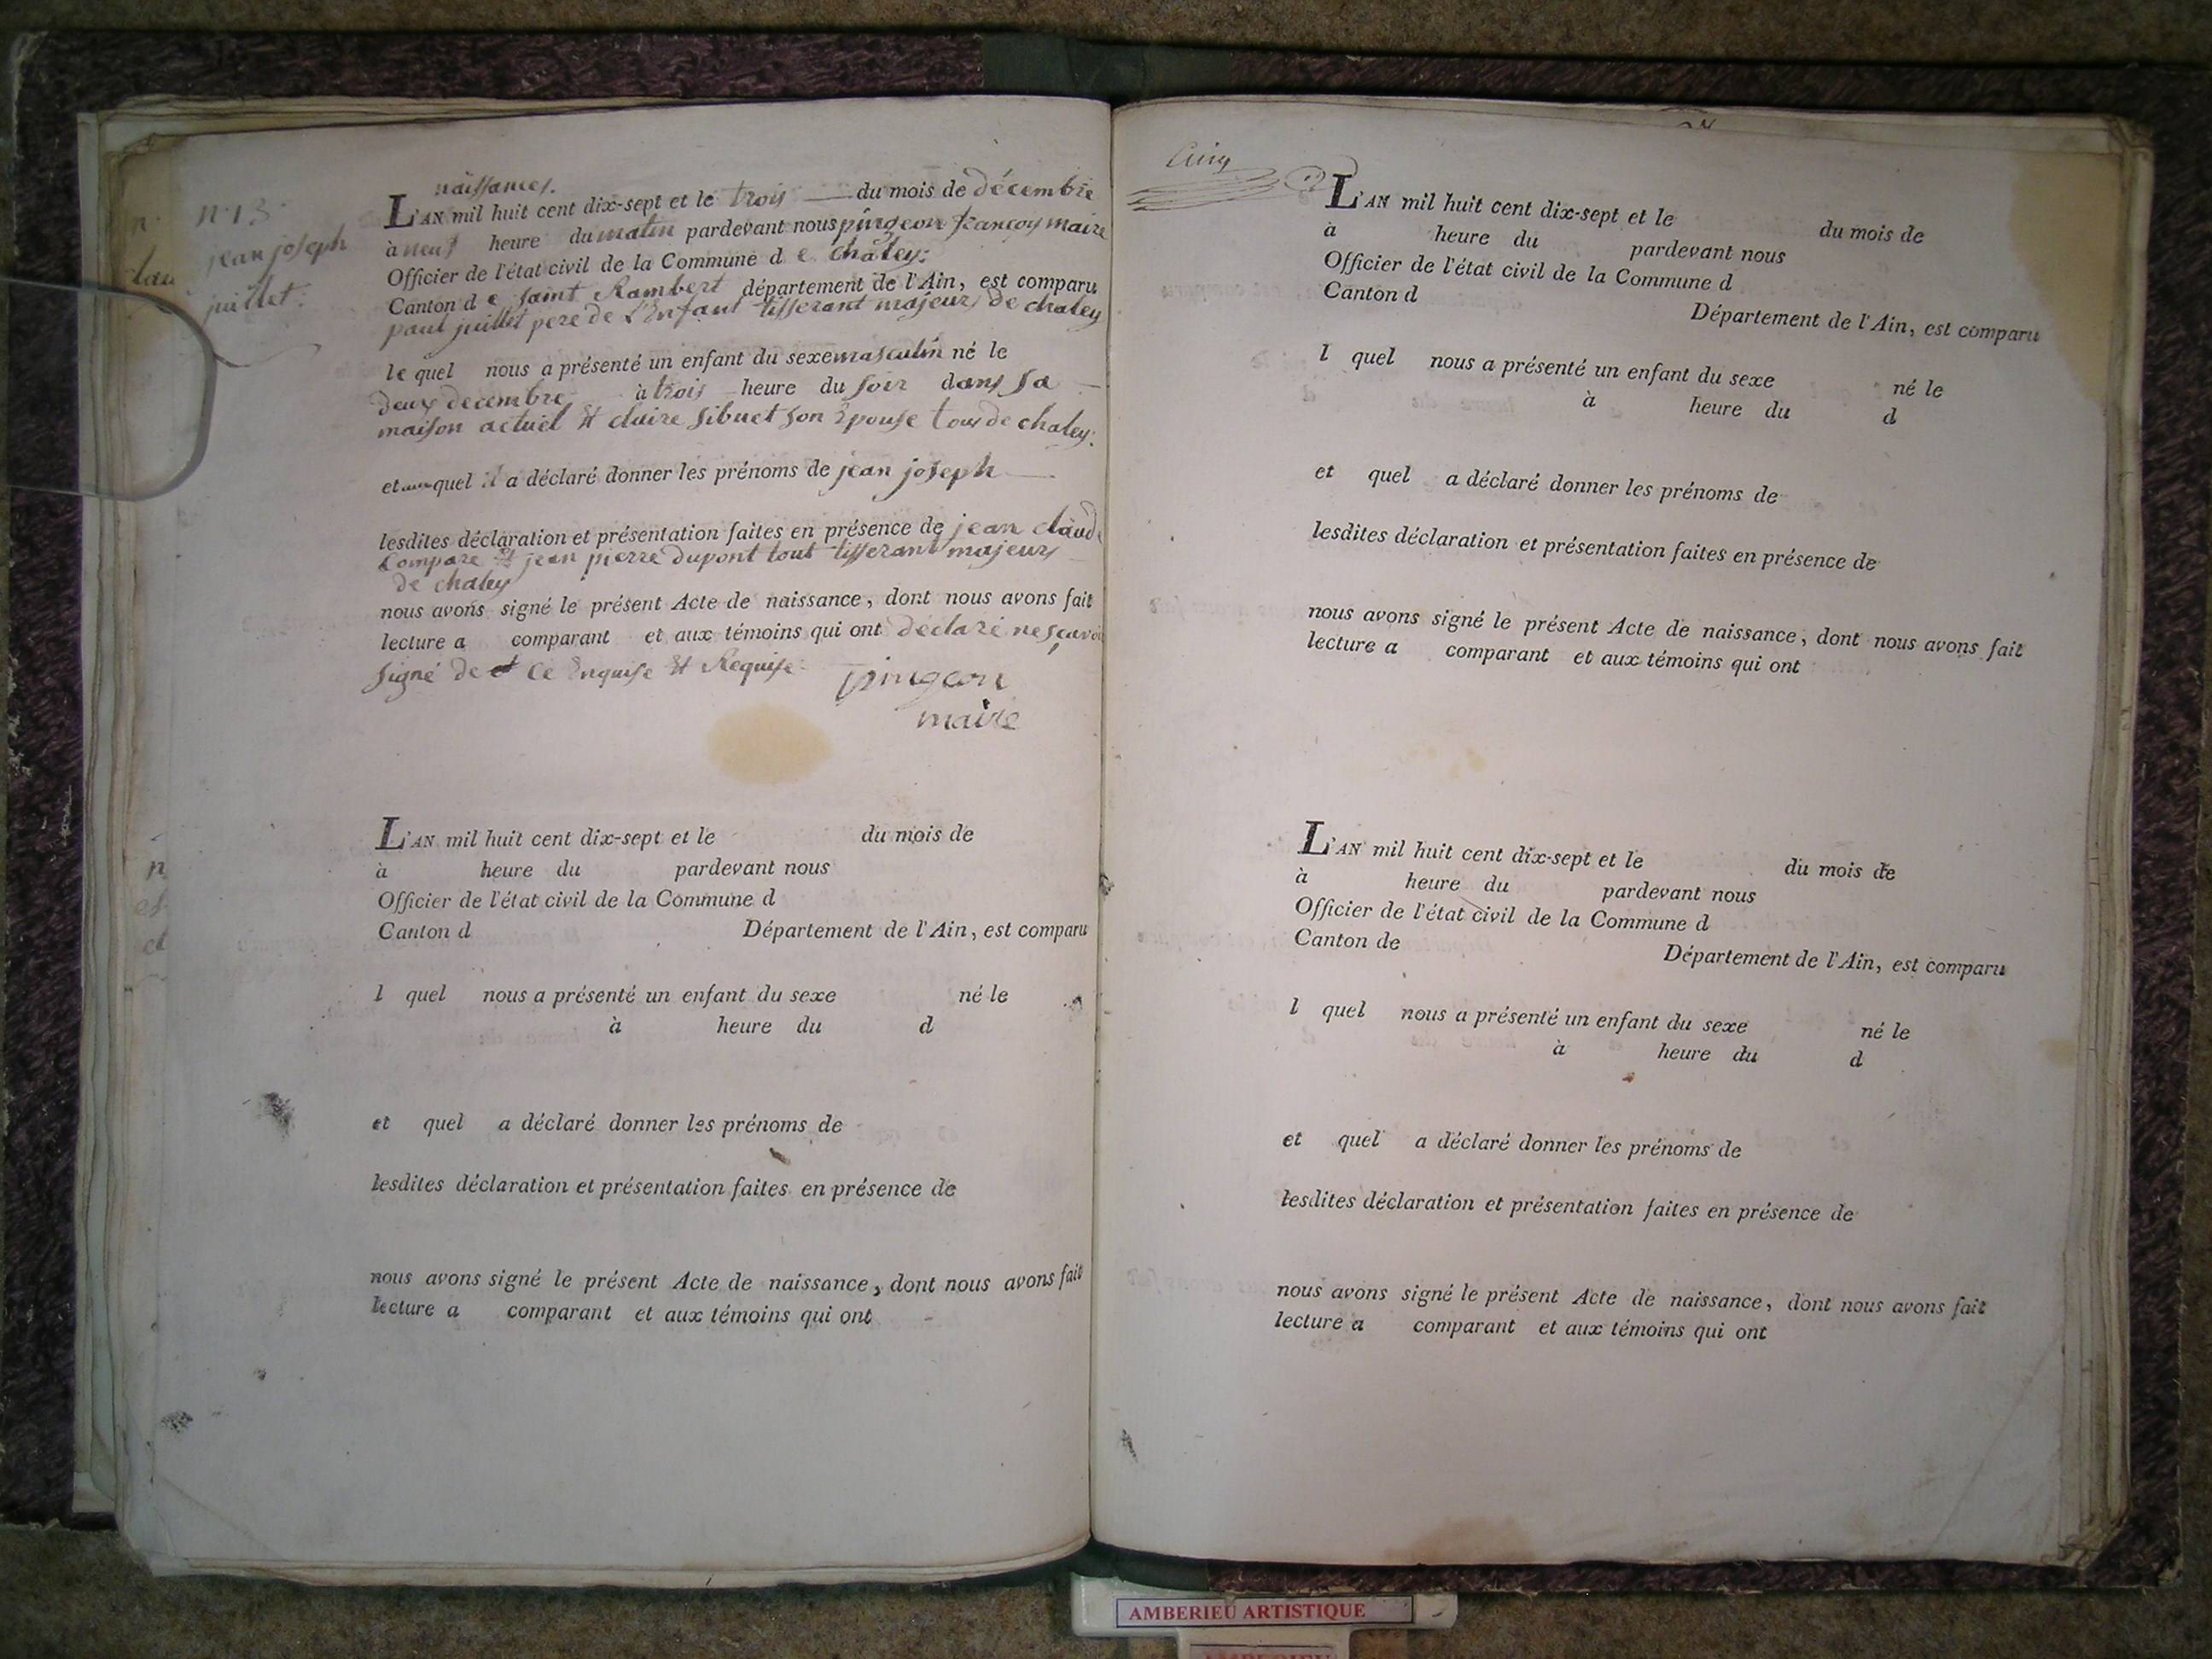 naissances.
n. 13.
jean joseph
juillet.
L'AN mil huit cent dix-sept et le trois du mois de décembre
à neuf heure du matin pardevant nous pingeon françois maire
Officier de l'état civil de la Commune de chaley.
Canton de saint Rambert département de l'Ain, est comparu
paul juillet pere de L'Enfant tisserant majeur de chaley
le quel nous a présenté un enfant du sexe masculin né le
deux decembre à trois heure du soir dans sa
maison actuel et claire sibuet son Epouse tous de chaley.
et quel il a déclaré donner les prénoms de jean joseph
lesdites déclaration et présentation faites en présence de jean claude
Compare et jean pierre dupont tout tisserant majeurs
de chaley
nous avons signé le présent Acte de naissance, dont nous avons fait
lecture a comparant et aux témoins qui ont déclaré ne sçavoir
signé de Ce Enquise et Requise.
pingeon
maire
L'AN mil huit cent dix-sept et le du mois de
à heure du pardevant nous
Officier de l'état civil de la Commune d
Canton d Département de l'Ain, est comparu
l quel nous a présenté un enfant du sexe né le
à heure du d
et quel a déclaré donner les prénoms de
lesdites déclaration et présentation faites en présence de
nous avons signé le présent Acte de naissance, dont nous avons fait
lecture a comparant et aux témoins qui ont
L'AN mil huit cent dix-sept et le du mois de
à heure du pardevant nous
Officier de l'état civil de la Commune d
Canton d Département de l'Ain, est comparu
l quel nous a présenté un enfant du sexe né le
à heure du d
et quel a déclaré donner les prénoms de
lesdites déclaration et présentation faites en présence de
nous avons signé le présent Acte de naissance, dont nous avons fait
lecture a comparant et aux témoins qui ont
L'AN mil huit cent dix-sept et le du mois de
à heure du pardevant nous
Officier de l'état civil de la Commune d
Canton de Département de l'Ain, est comparu
l quel nous a présenté un enfant du sexe né le
à heure du d
et quel a déclaré donner les prénoms de
lesdites déclaration et présentation faites en présence de
nous avons signé le présent Acte de naissance, dont nous avons fait
lecture a comparant et aux témoins qui ont
AMBERIEU ARTISTIQUE